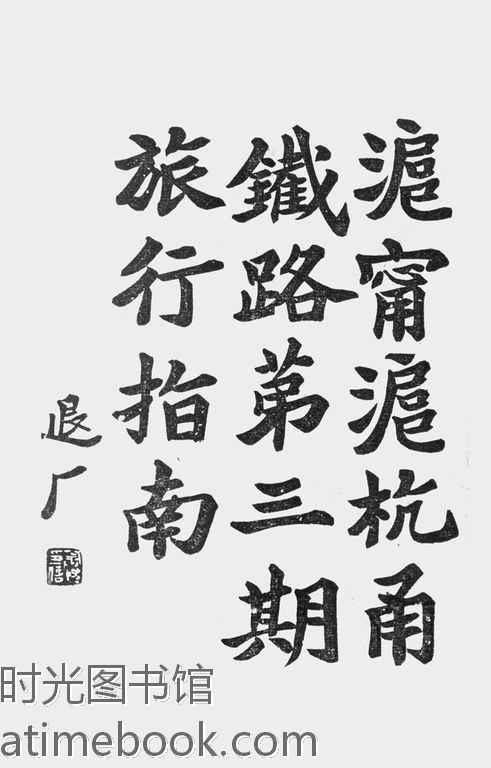 滬甯滬杭甬
鐵路第三期
旅行指南
退厂
时光图书馆
atimebook.com